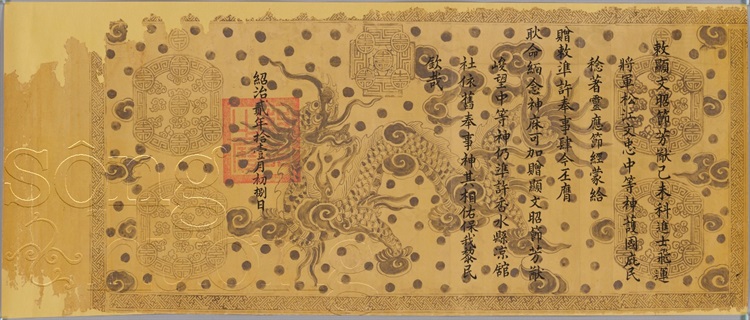 敕顯文昭節芳猷己未科進士飛運
將軍松江文忠中等神護國庇民
稔著靈應節經蒙給
贈敕準許奉事肆今丕膺
耿命緬念神庥可加贈顯文昭節芳猷
峻望中等神仍準許香水縣舘
社依舊奉事神其相佑保我黎民
欽哉
紹治貳年拾壹月初捌日
sông